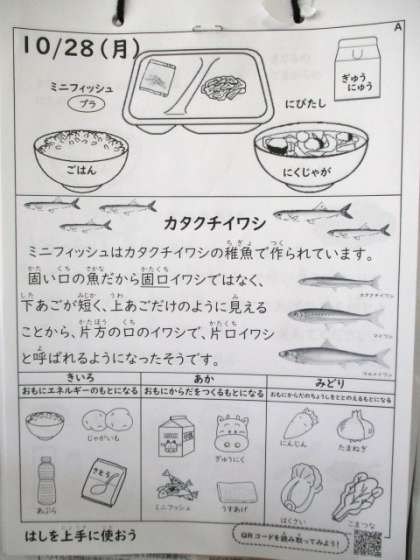 A
10/28(月)
ミニフィッシュ
プラ
ぎゅう
にゅう
にびたし
ごはん
にくじゃが
カタクチイワシ
ミニフィッシュはカタクチイワシの稚魚で作られています。
固い口の魚だから固口イワシではなく、
下あごが短く、上あごだけのように見える
ことから、片方の口のイワシで、片口イワシ
と呼ばれるようになったそうです。
カタクチイワシ
マイワシ
ウルメイワシ
きいろ
おもにエネルギーのもとになる
じゃがいも
あぶら
さとう
あか
おもにからだをつくるもとになる
ぎゅうにく
ミニフィッシュ
うすあげ
みどり
おもにからだのちょうしをととのえるもとになる
にんじん
たまねぎ
はくさい
こまつな
はしを上手に使おう
QRコードを読み取ってみよう!